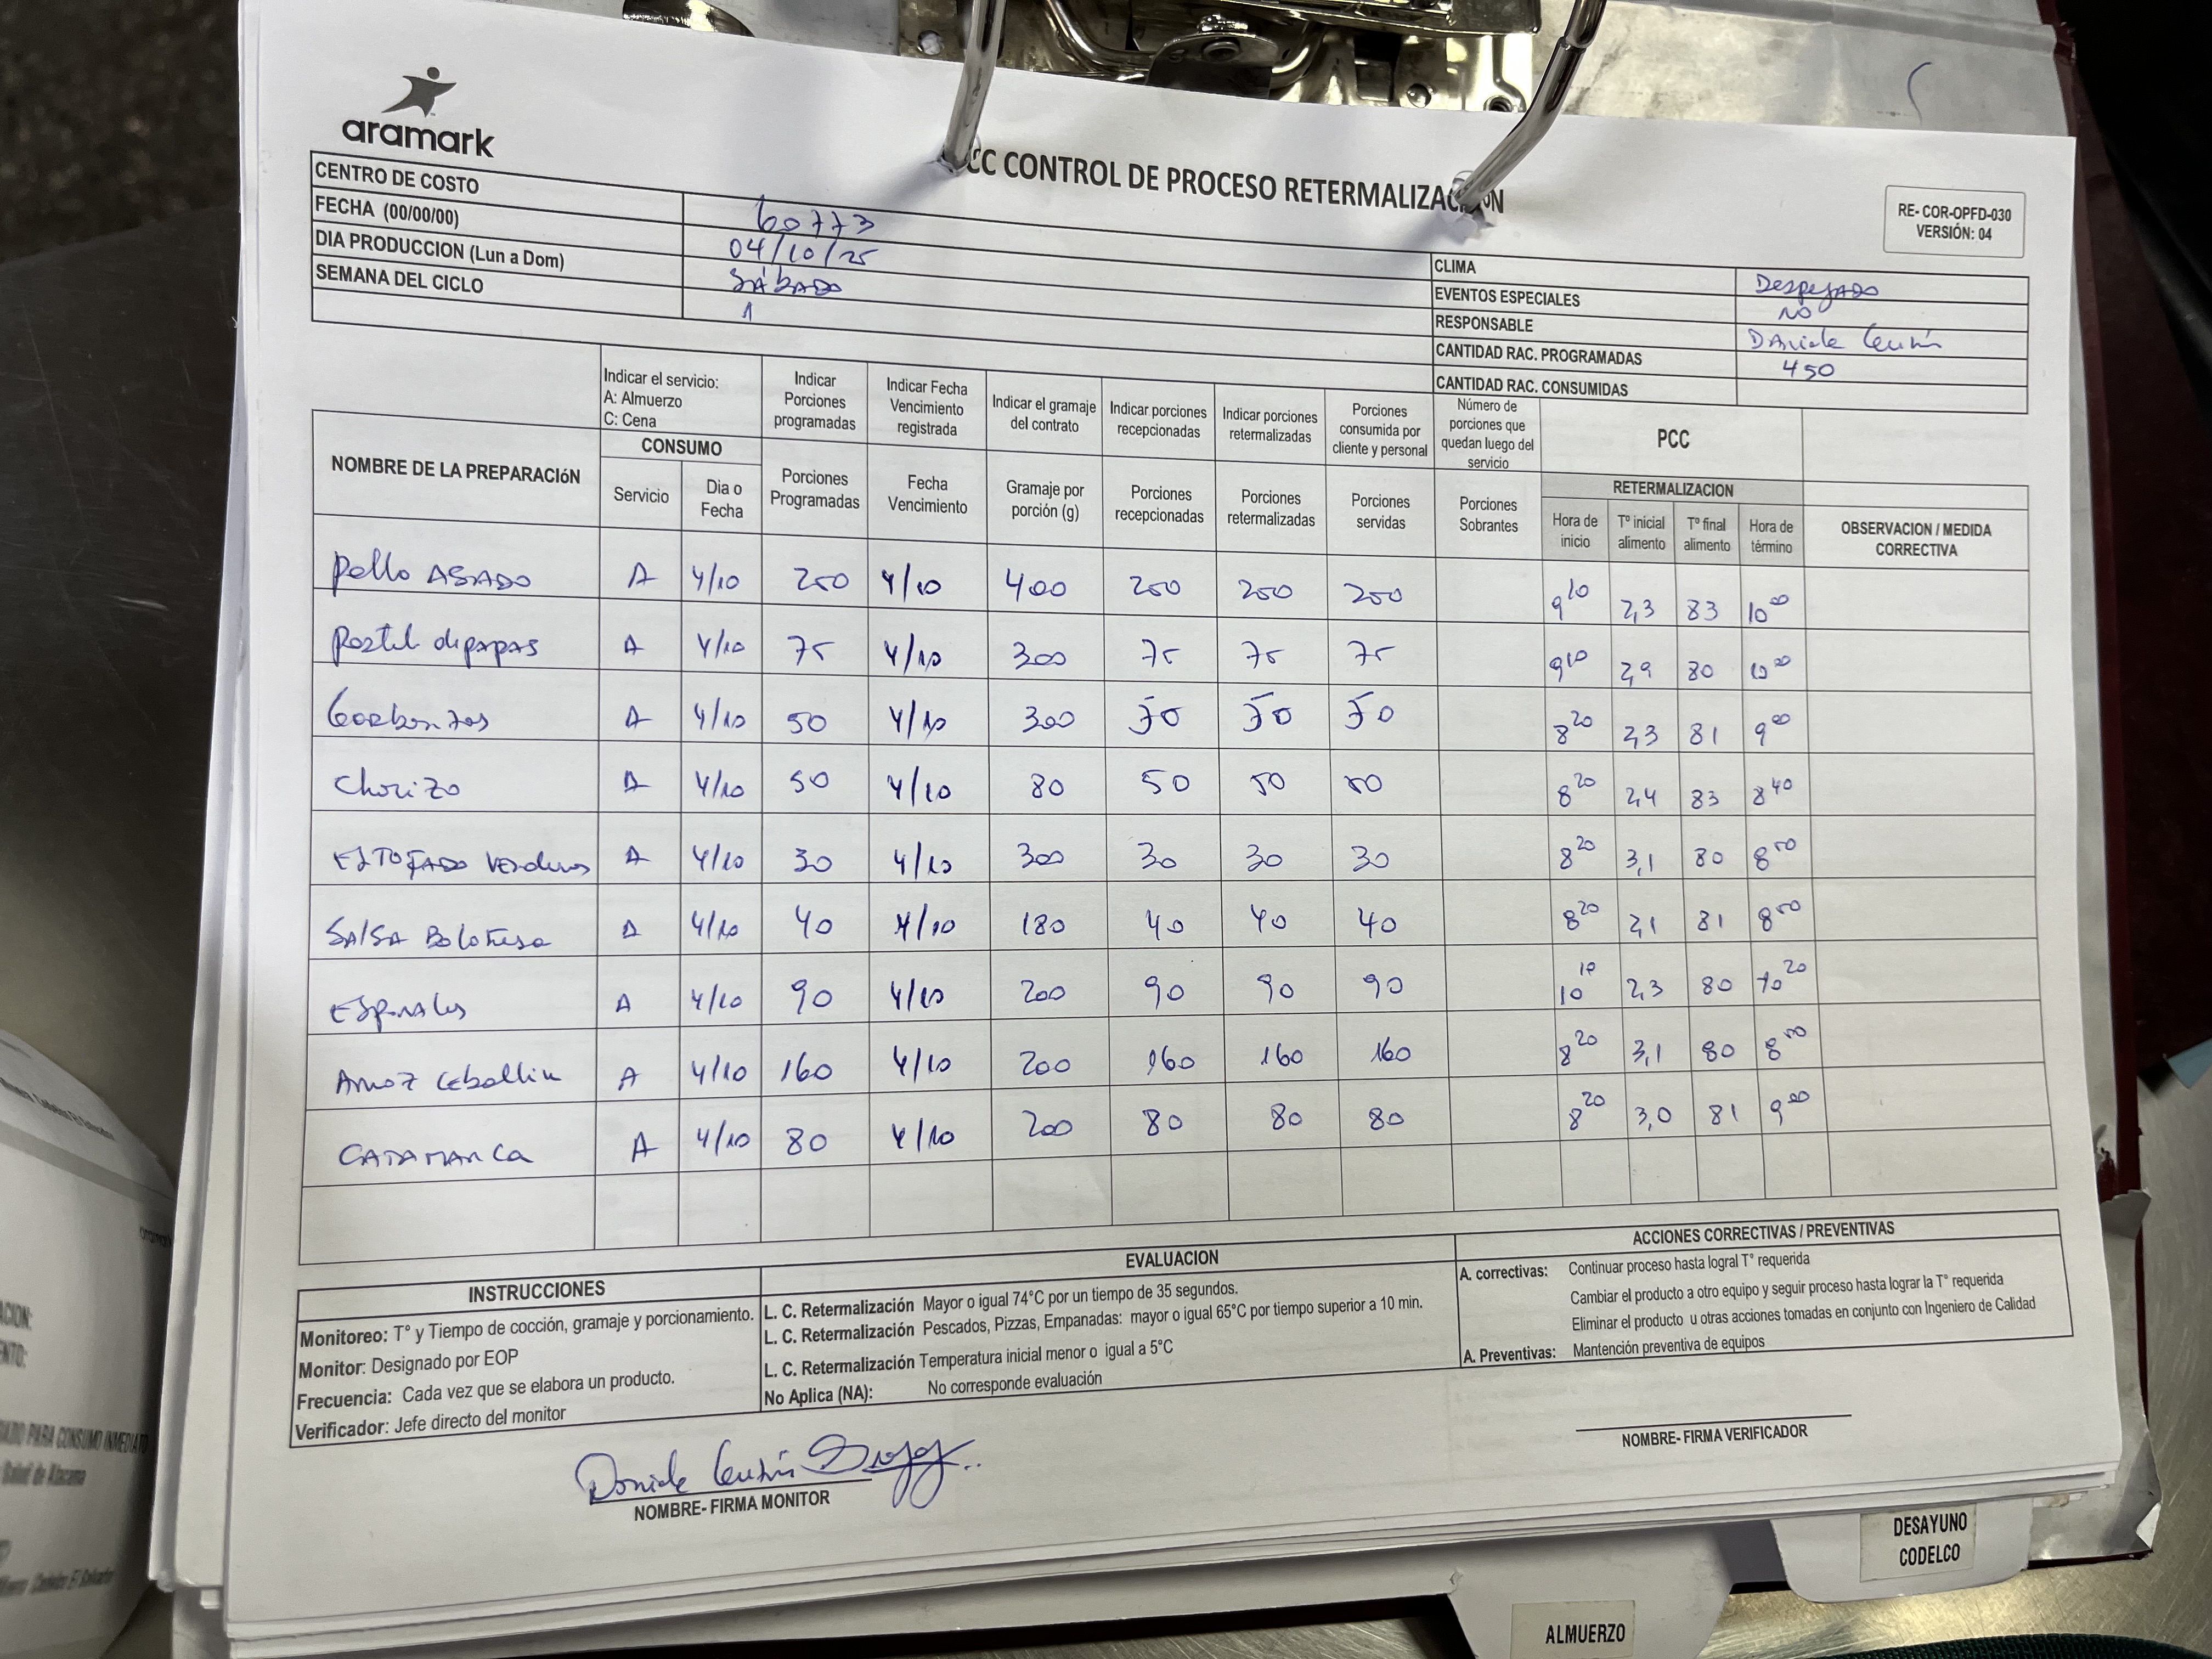 aramark
CC CONTROL DE PROCESO RETERMALIZACION
RE- COR-OPFD-030
VERSIÓN: 04
CENTRO DE COSTO 60773
FECHA (00/00/00) 04/10/25
DIA PRODUCCION (Lun a Dom) SÁBADO
SEMANA DEL CICLO 1
CLIMA Despejado
EVENTOS ESPECIALES NO
RESPONSABLE Daniela
CANTIDAD RAC. PROGRAMADAS 450
CANTIDAD RAC. CONSUMIDAS
Indicar el servicio:
A: Almuerzo
C: Cena
Indicar Porciones programadas
Indicar Fecha Vencimiento registrada
Indicar el gramaje del contrato
Indicar porciones recepcionadas
Indicar porciones retermalizadas
Porciones consumida por cliente y personal
Número de porciones que quedan luego del servicio
PCC
NOMBRE DE LA PREPARACIóN
CONSUMO
Servicio
Dia o Fecha
Porciones Programadas
Fecha Vencimiento
Gramaje por porción (g)
Porciones recepcionadas
Porciones retermalizadas
Porciones servidas
Porciones Sobrantes
RETERMALIZACION
Hora de inicio
Tº inicial alimento
Tº final alimento
Hora de término
OBSERVACION / MEDIDA CORRECTIVA
Pollo ASADO A 4/10 250 4/10 400 250 250 250 9 10 2,3 83 10 00
Pastel de papas A 4/10 75 4/10 300 75 75 75 9 10 2,9 80 10 00
Garbanzos A 4/10 50 4/10 300 50 50 50 8 20 2,3 81 9 00
Chorizo A 4/10 50 4/10 80 50 50 50 8 20 2,4 83 8 40
ESTOFADO Verduras A 4/10 30 4/10 300 30 30 30 8 20 3,1 80 8 50
SALSA Boloñesa A 4/10 40 4/10 180 40 40 40 8 20 2,1 81 8 50
Espirales A 4/10 90 4/10 200 90 90 90 10 10 2,3 80 10 20
Arroz Cebollin A 4/10 160 4/10 200 160 160 160 8 20 3,1 80 8 50
CATAMARCA A 4/10 80 4/10 200 80 80 80 8 20 3,0 81 9 00
INSTRUCCIONES
Monitoreo: T° y Tiempo de cocción, gramaje y porcionamiento.
Monitor: Designado por EOP
Frecuencia: Cada vez que se elabora un producto.
Verificador: Jefe directo del monitor
EVALUACION
L. C. Retermalización Mayor o igual 74°C por un tiempo de 35 segundos.
L. C. Retermalización Pescados, Pizzas, Empanadas: mayor o igual 65°C por tiempo superior a 10 min.
L. C. Retermalización Temperatura inicial menor o igual a 5°C
No Aplica (NA): No corresponde evaluación
ACCIONES CORRECTIVAS / PREVENTIVAS
A. correctivas: Continuar proceso hasta logral T° requerida
Cambiar el producto a otro equipo y seguir proceso hasta lograr la T° requerida
Eliminar el producto u otras acciones tomadas en conjunto con Ingeniero de Calidad
A. Preventivas: Mantención preventiva de equipos
Daniela
NOMBRE- FIRMA MONITOR
NOMBRE- FIRMA VERIFICADOR
DESAYUNO
CODELCO
ALMUERZO
ADO PARA CONSUMO INMEDIATO
Salud de Atacama